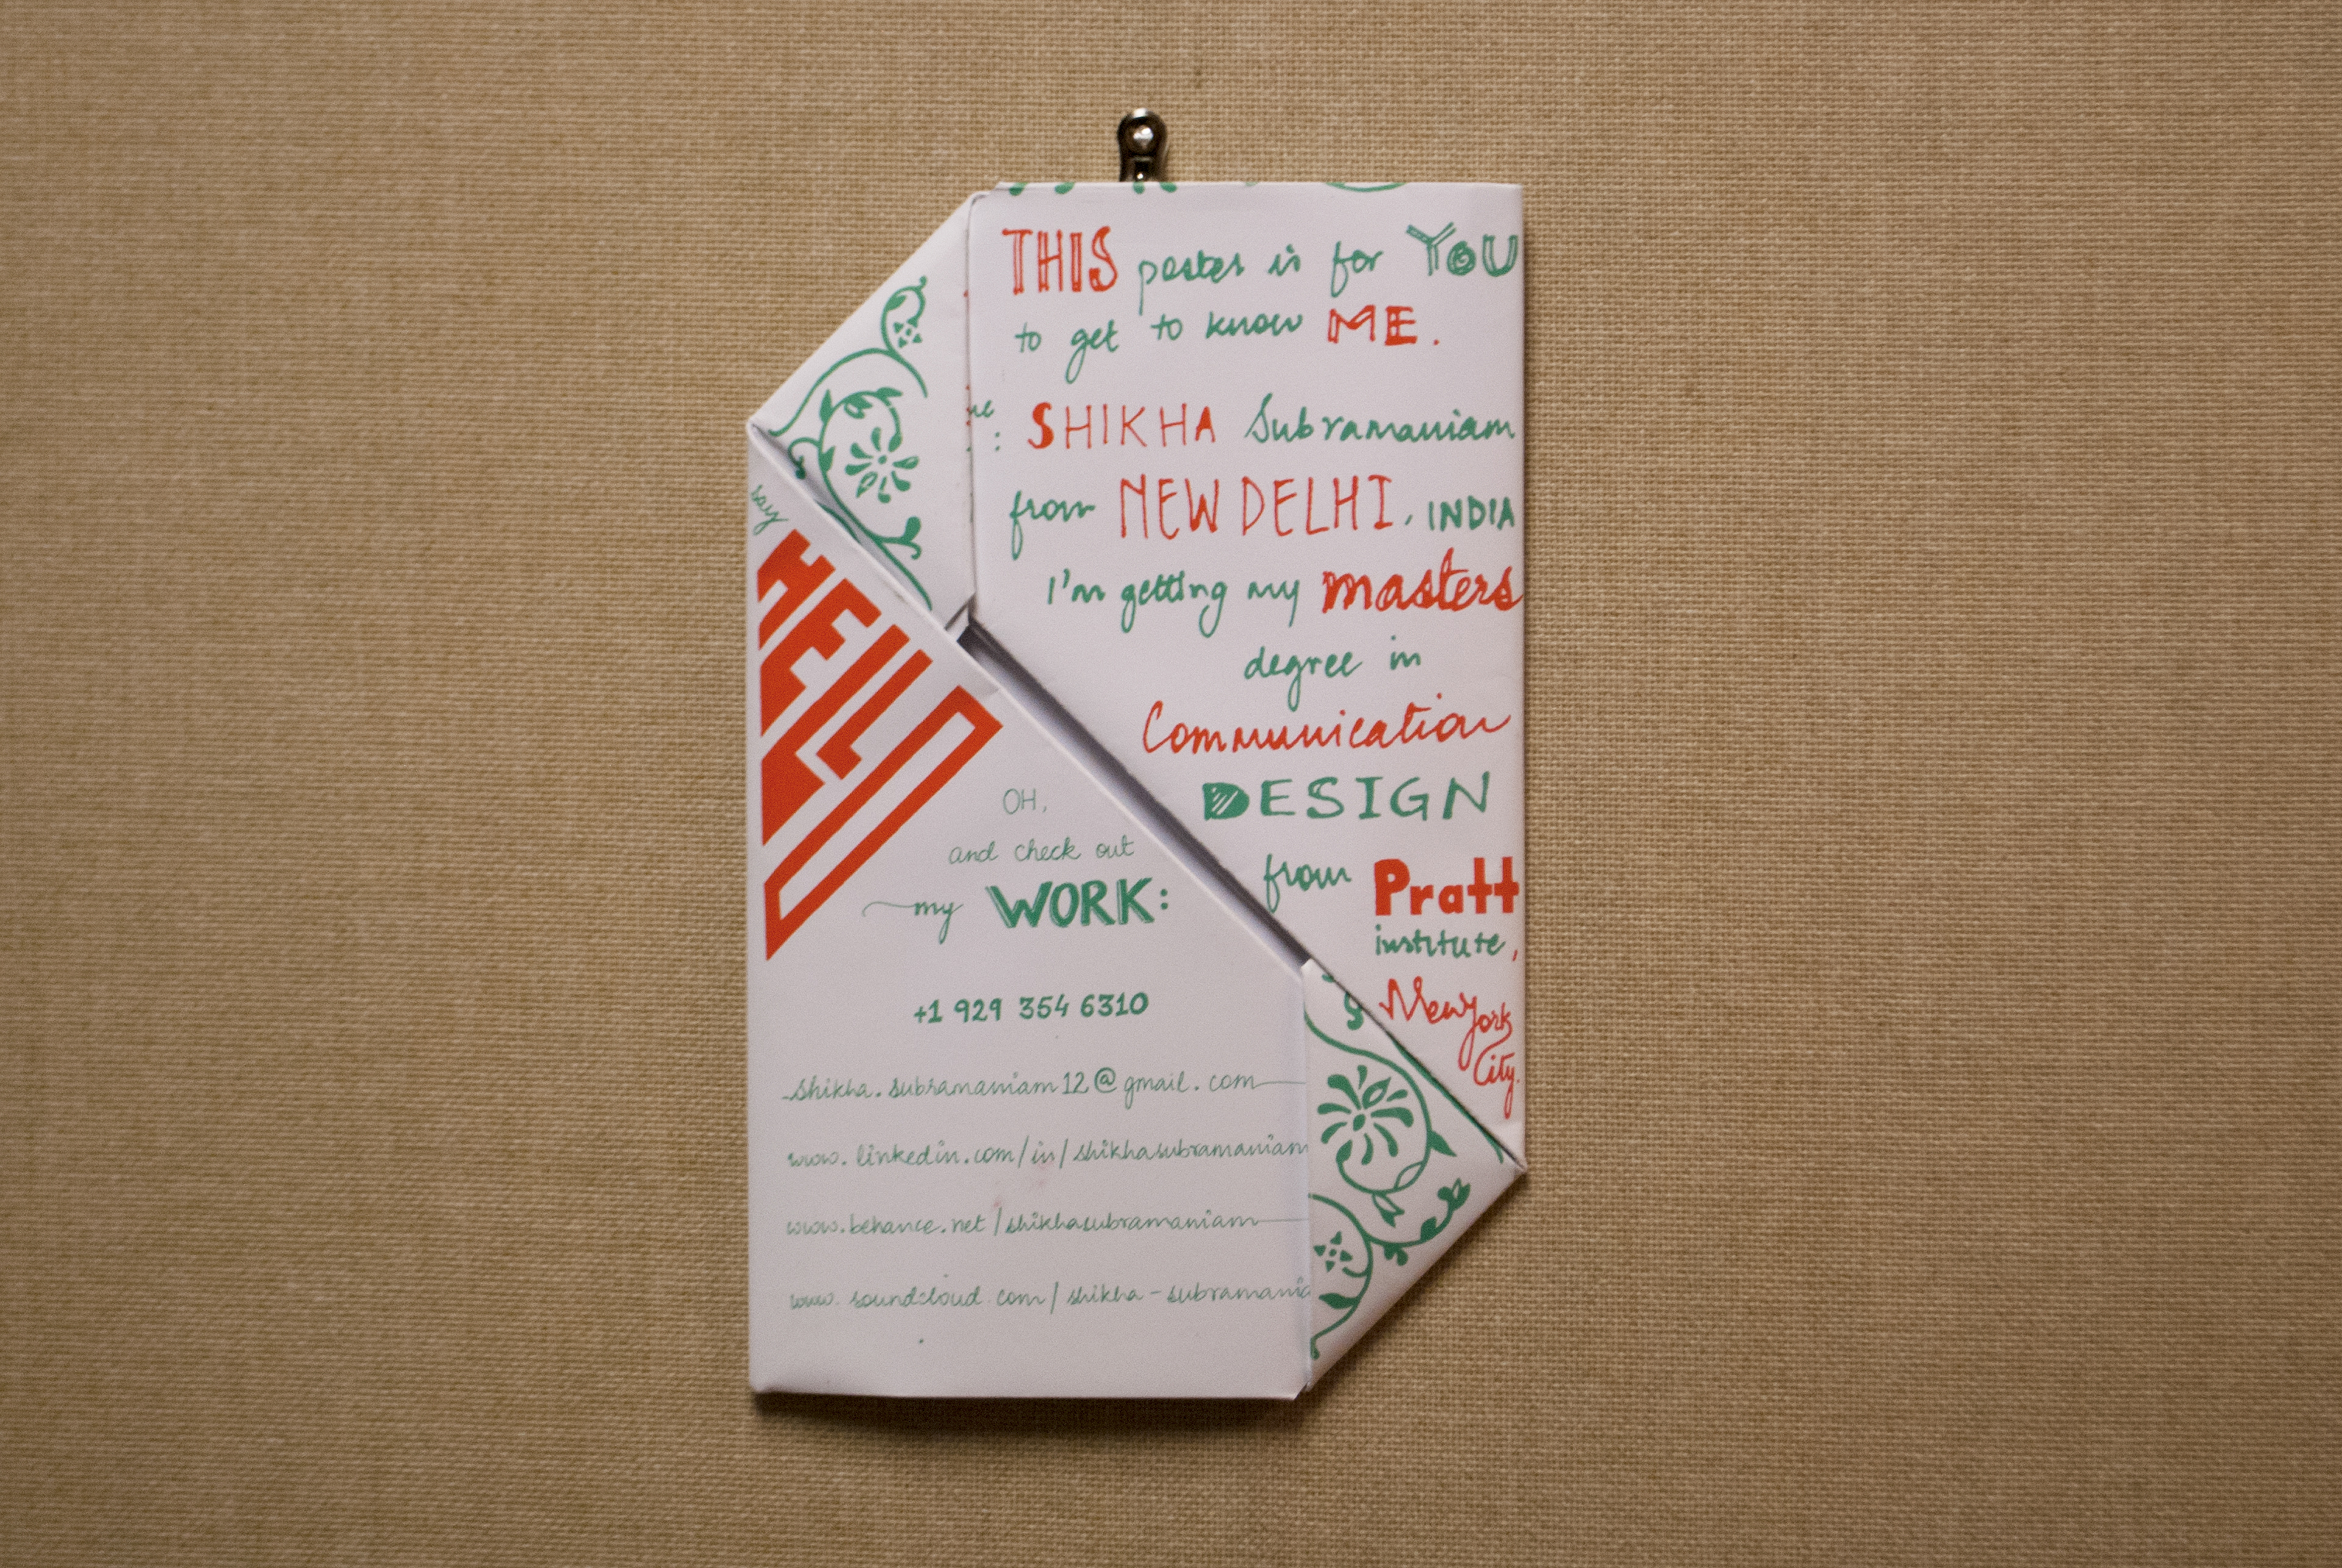 THIS poster is for YOU
to get to know ME.
SHIKHA Subramaniam
from NEW DELHI, INDIA
I'm getting my masters
degree in
Communication
DESIGN
from Pratt
institute,
New York
City.
say
HELLO
OH,
and check out
my WORK:
+1 929 354 6310
shikha.subramaniam12@gmail.com
www.linkedin.com/in/shikhasubramaniam
www.behance.net/shikhasubramaniam
www.soundcloud.com/shikha-subramania